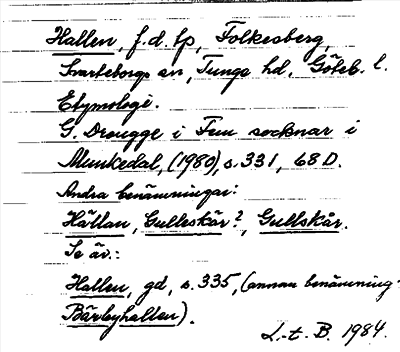 Hallen, f.d. tp, Folkesberg,
Svarteborgs sn, Tunge hd, Göteb. l.
Etymologi.
G. Drougge i Fem socknar i
Munkedal, (1980), s. 331, 68 D.
Andra benämningar:
Hällan, Gulleskär?, Gullskär.
Se äv.:
Hallen, gd, s. 335, (annan benämning
Bärbyhallen).
L-t. B. 1984.